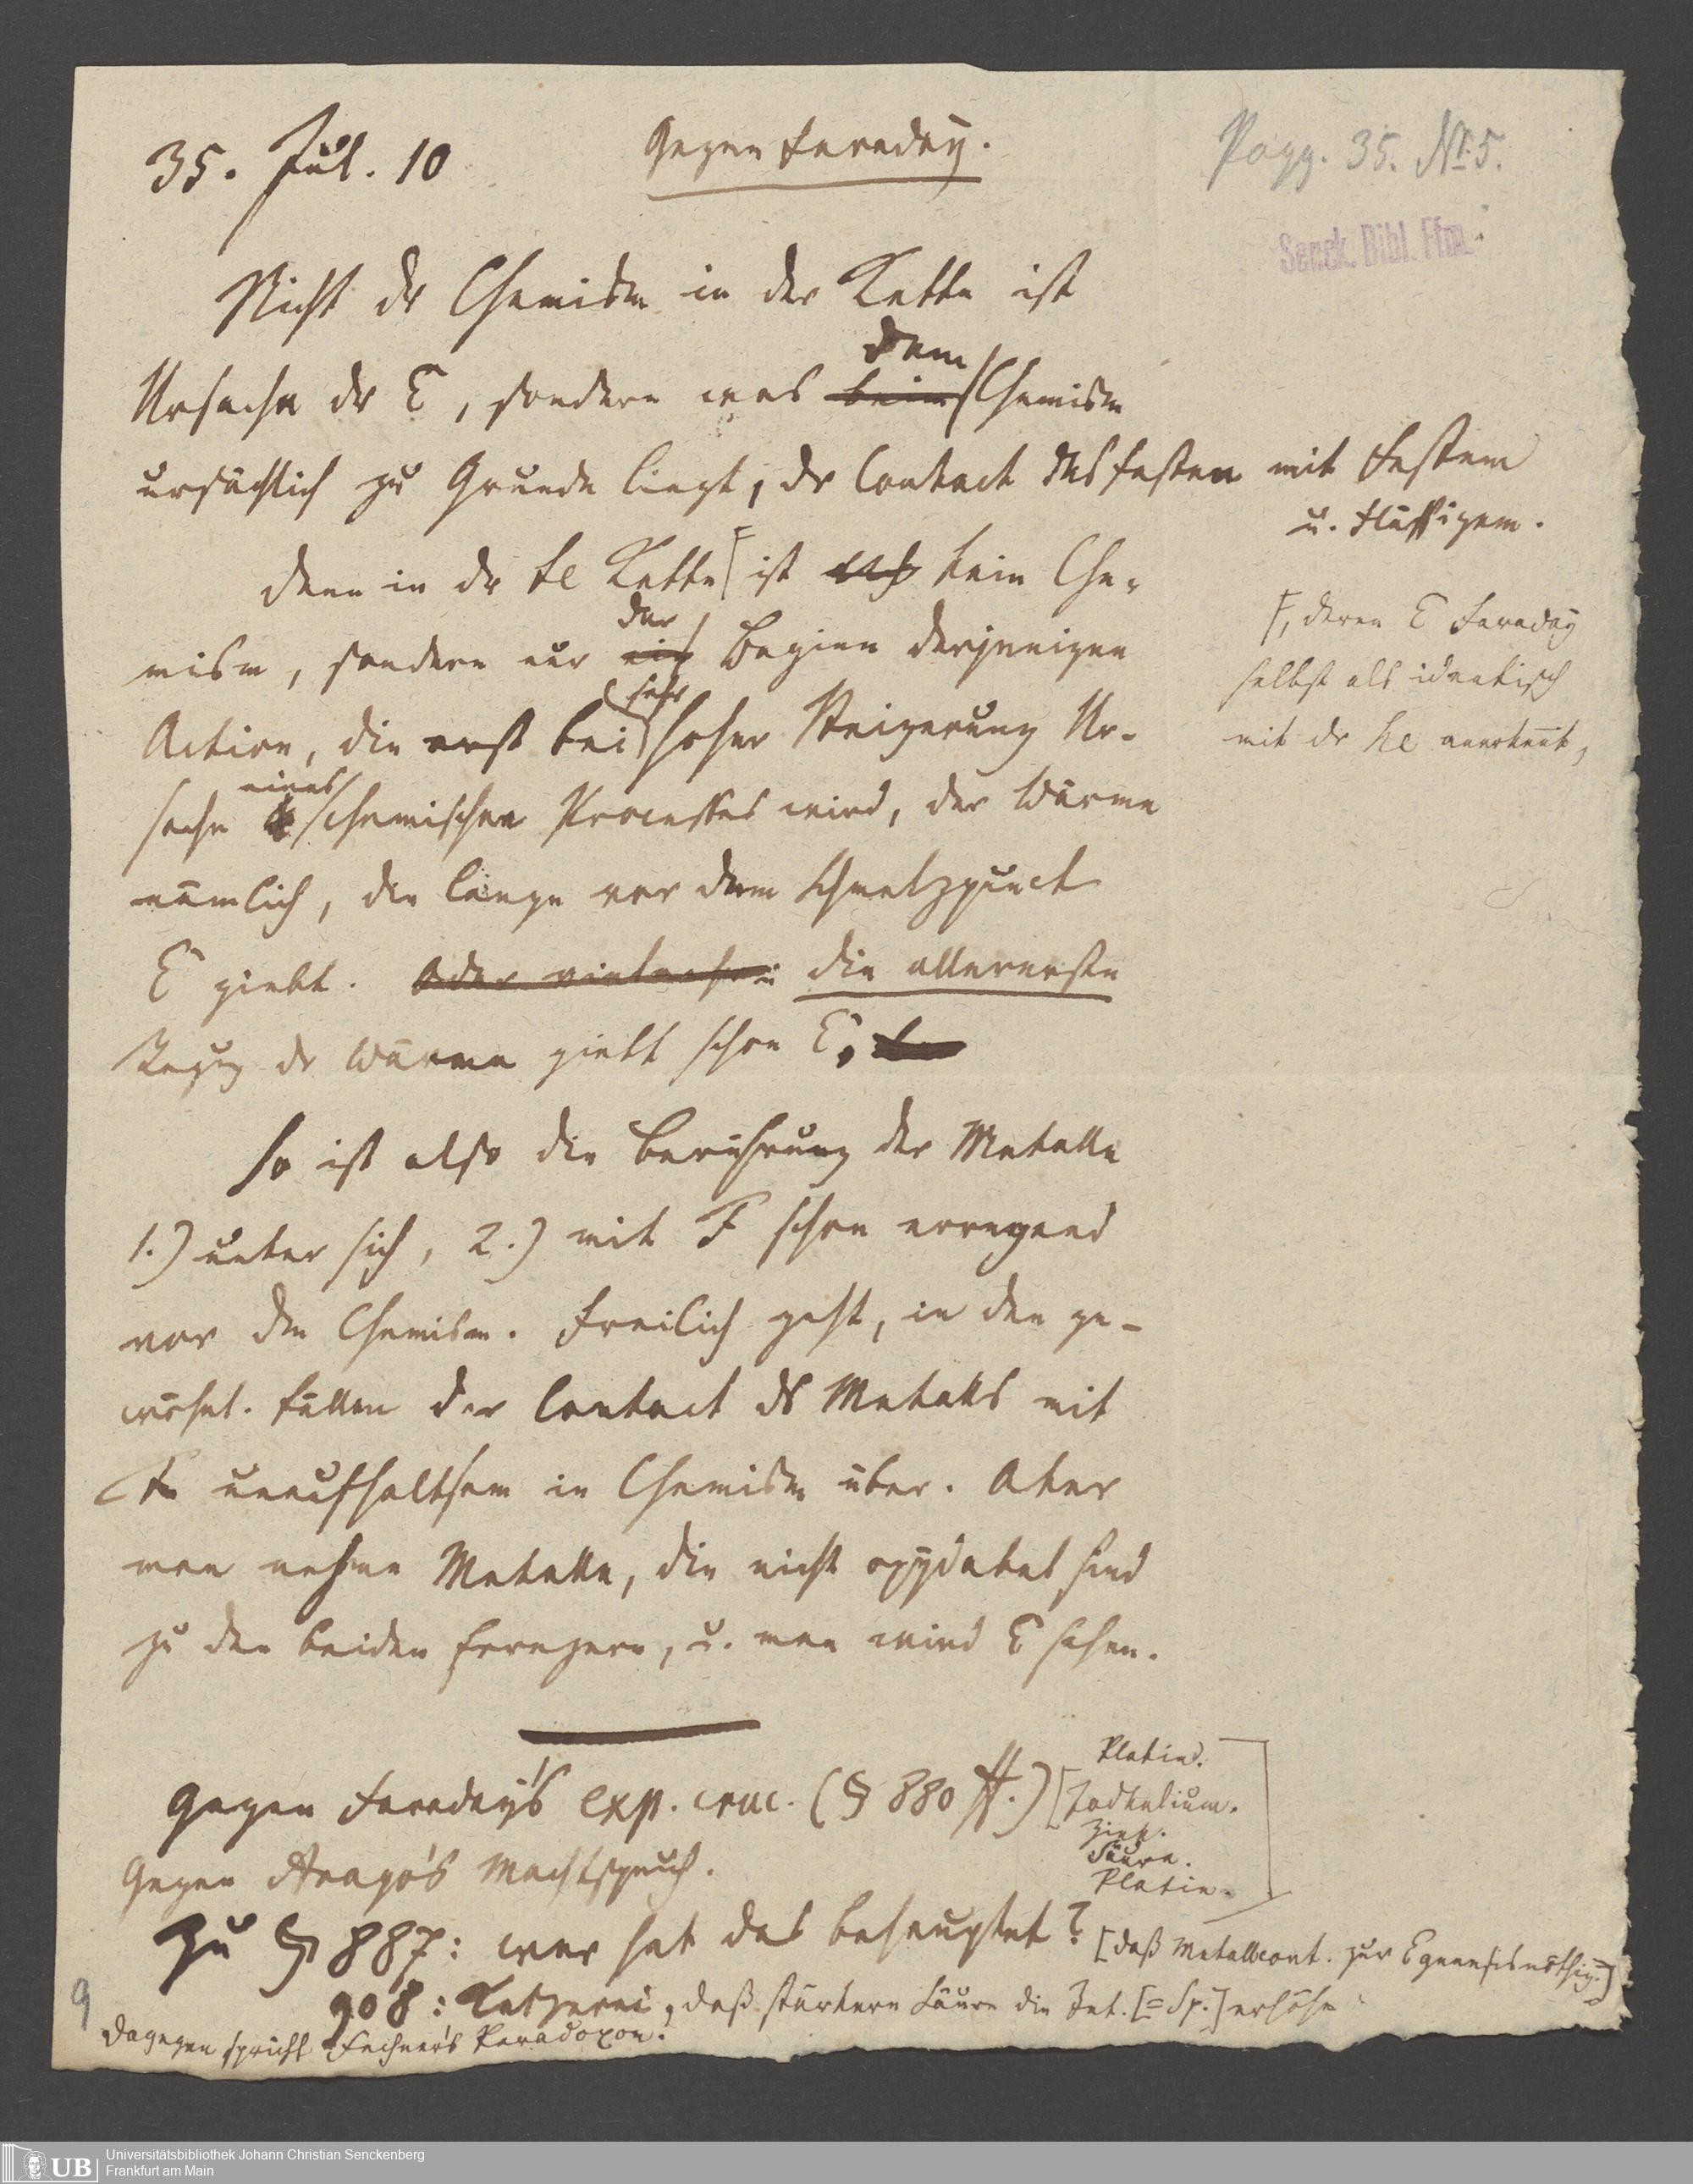 35. Jul. 10
Gegen Faraday.
Pogg. 35. No 5.
Senck. Bibl. Ffm.
Nicht dr Chemism in der Kette ist
dem
Ursache dr E, sondern was beim Chemism
ursächlich zu Grunde liegt, dr Contact des festen mit Festem
u. Flüssigem.
Denn in dr te Kette ist kein Che-
der
mism, sondern nur ein Beginn derjenigen
sehr
Action, die erst bei hoher Steigerung Ur-
eines
sache chemischen Processes wird, der Wärme
nämlich, die lange vor dem Schmelzpunct
E giebt. Oder vielmehr: die allererste
Regg dr Wärme giebt schon E.
, deren E Faraday
selbst als identisch
mit dr he anerkennt,
So ist also die Berührung der Metalle
1.) unter sich, 2.) mit F schon erregend
vor dem Chemism. Freilich geht, in den ge-
wöhnl. Fällen der Contact ds Metalls mit
F unaufhaltsam in Chemism über. Aber
man nehme Metalle, die nicht oxydabel sind
zu den beiden Erregern, u. man wird E sehen.
Gegen Faraday's exp. cruc. (§ 880 ff.)
Platin.
Jodkalium.
Zink.
Säure.
Platin.
Gegen Arago's Machtspruch.
Zu § 887: wer hat das behauptet? [daß Metallcont. zur Egenesis nöthig.]
908: Ketzerei, daß stärkere Säure die Int. [= Sp.] erhöhe
Dagegen spricht Fechner's Paradoxon.
9
UB
Universitätsbibliothek Johann Christian Senckenberg
Frankfurt am Main